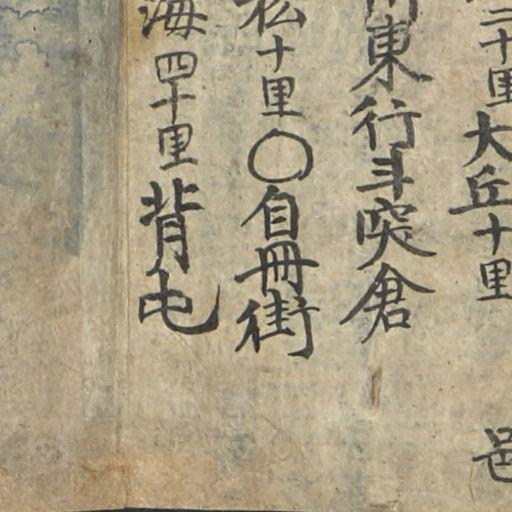 三十里大丘十里
邑
東行斗突倉
松十里〇自冊街
海四十里背屯